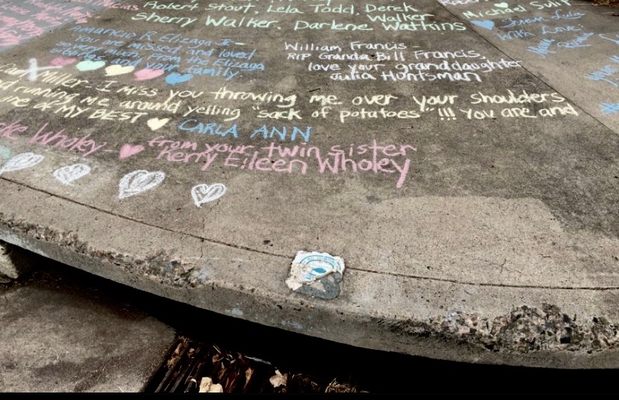 Robert Stout, Lela Todd, Derek
Walker
Sherry Walker, Darlene Watkins
Michael
with Love
Amancio R Elizaga I-
missed and loved
from the Elizaga
family
William Francis
RIP Granda Bill Francis,
love your granddaughter
Julia Huntsman
Miller. I miss you throwing me over your shoulders
running me around yelling "sack of potatoes"!!! You are and
one of my BEST
CARLA ANN
Wholey
from your twin sister
Kerry Eileen Wholey